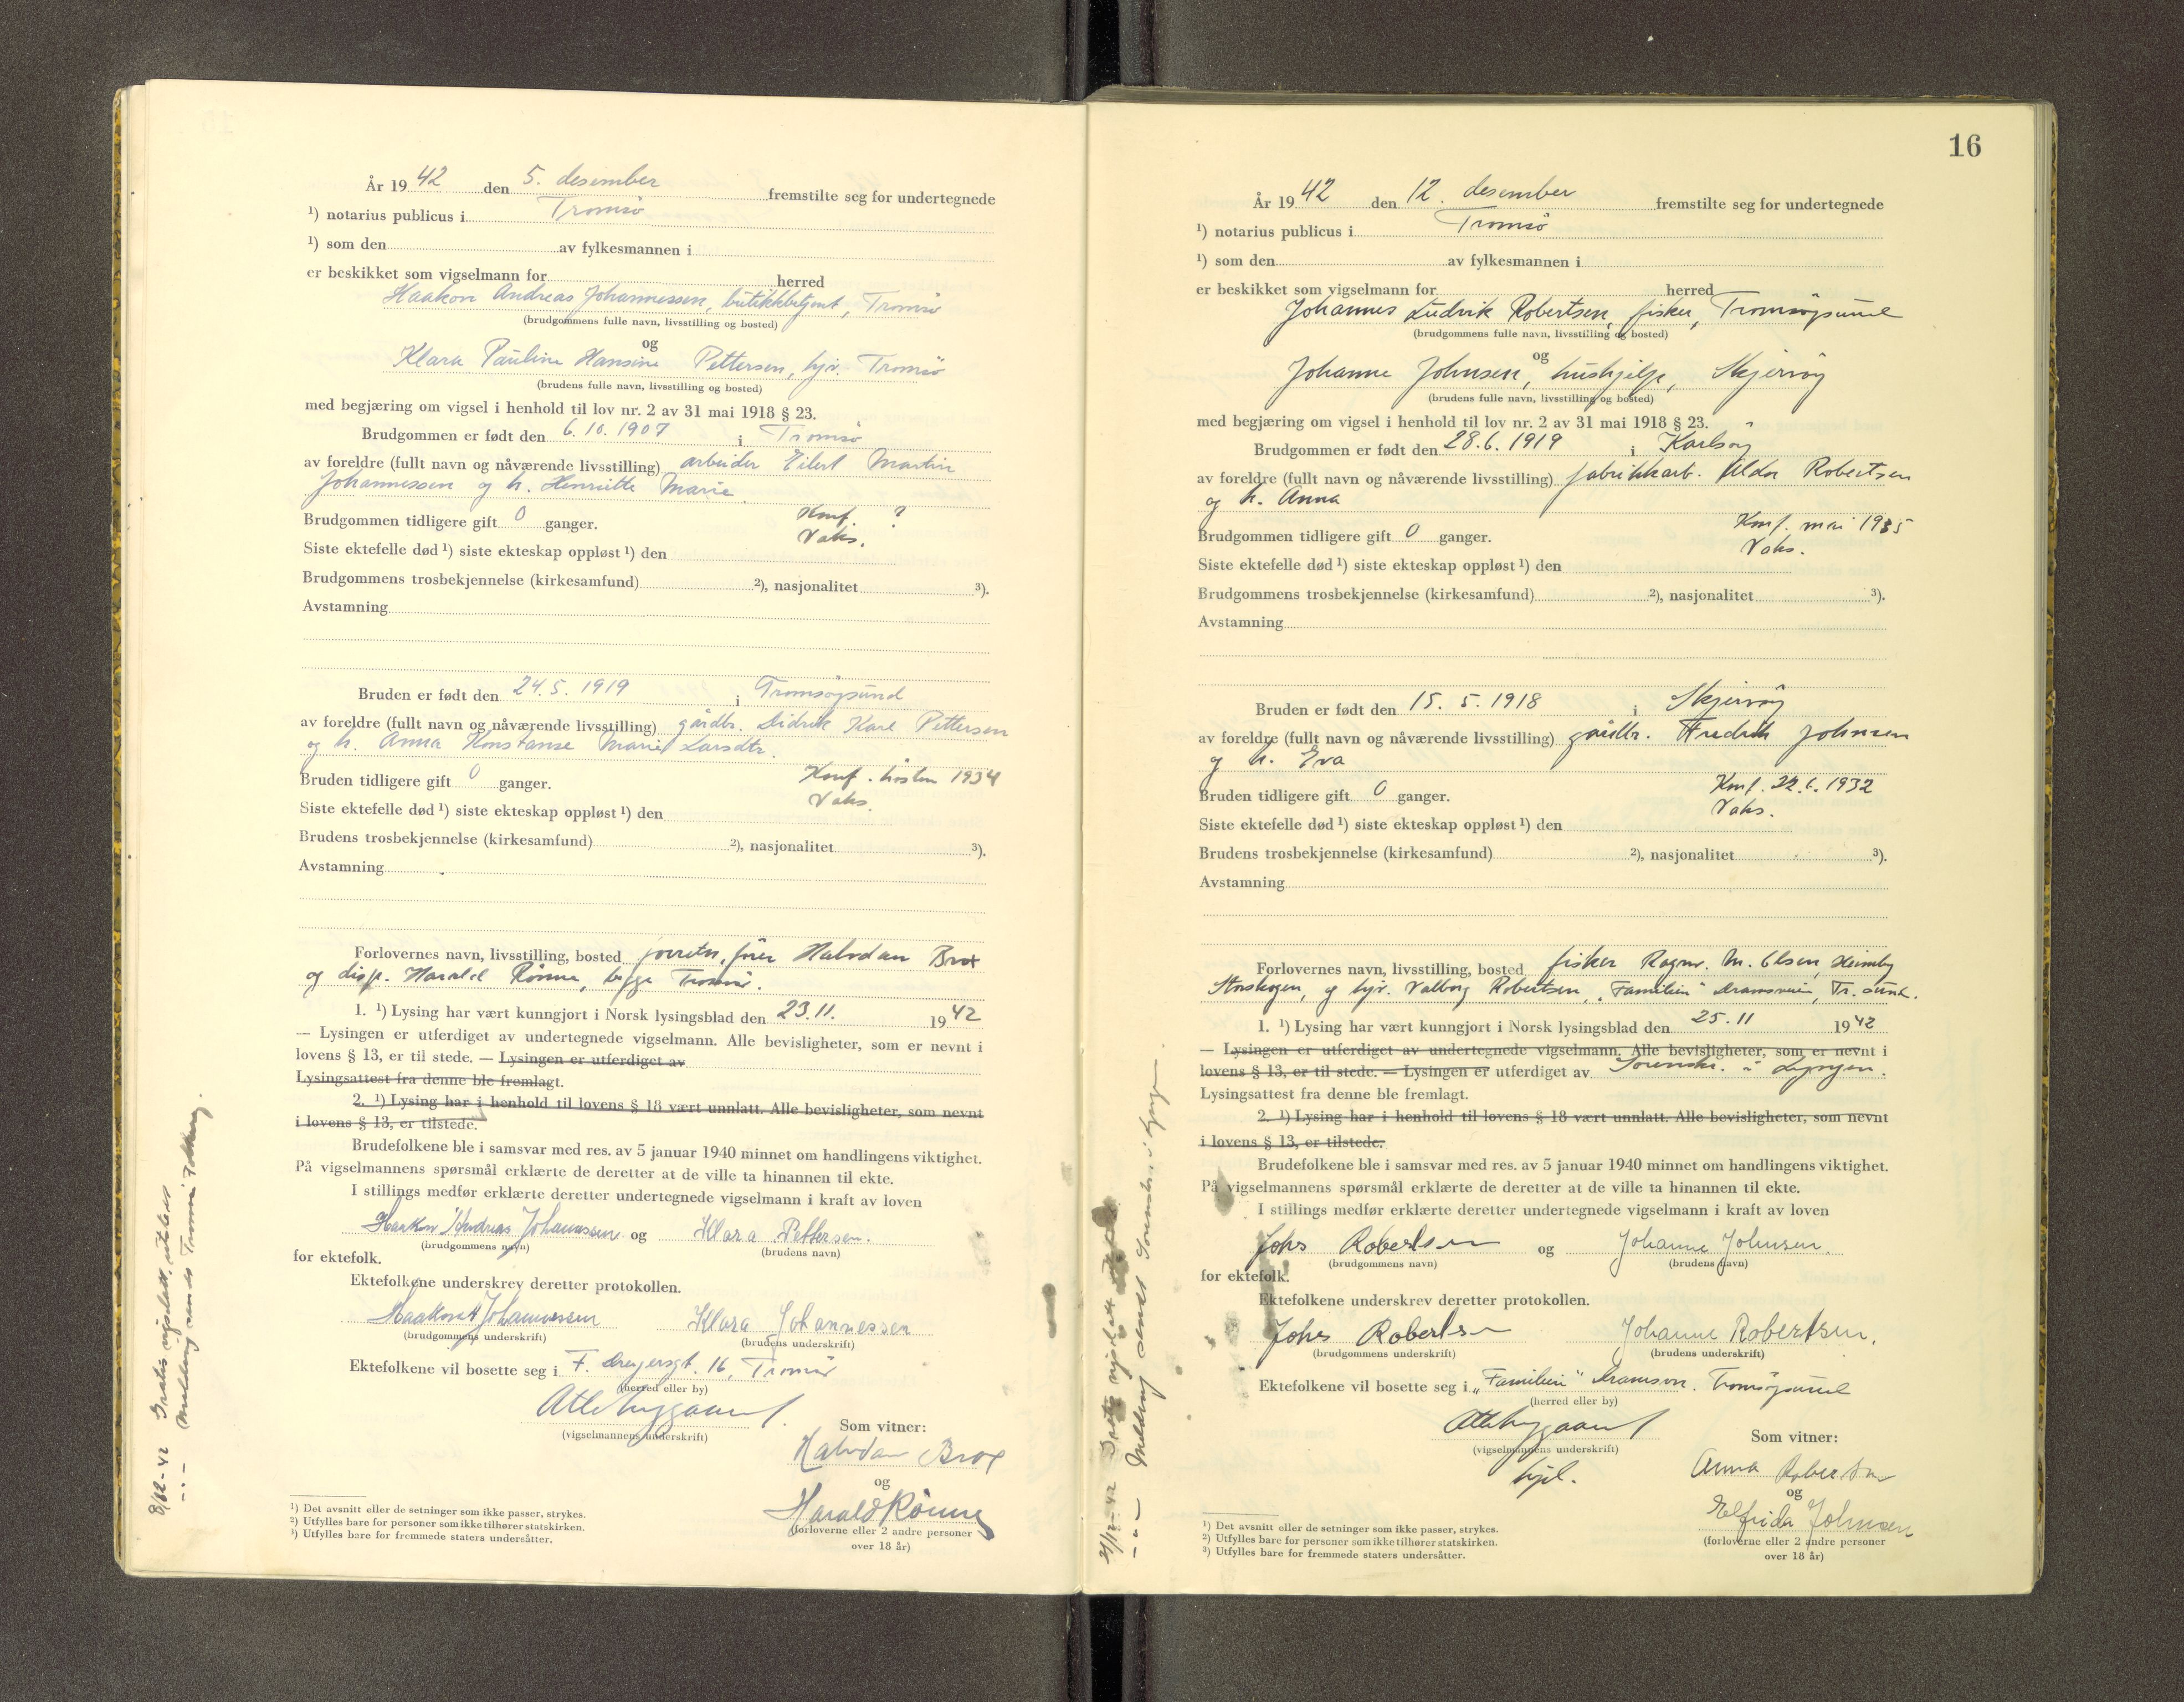 År 19 42 den 5. desember fremstilte seg for undertegnede
¹) notarius publicus i Tromsø
¹) som den av fylkesmannen i
er beskikket som vigselmann for herred
Haakon Andreas Johannessen, butikkbetjent, Tromsø
(brudgommens fulle navn, livsstilling og bosted)
og
Klara Pauline Hansine Pettersen, hjv. Tromsø
(brudens fulle navn, livsstilling og bosted)
med begjæring om vigsel i henhold til lov nr. 2 av 31 mai 1918 § 23.
Brudgommen er født den 6.10.1907 i Tromsø
av foreldre (fullt navn og nåværende livsstilling) arbeider Eilert Martin
Johannessen og h. Henriette Marie
Konf. ?
Brudgommen tidligere gift 0 ganger.
Vaks.
Siste ektefelle død ¹) siste ekteskap oppløst ¹) den
Brudgommens trosbekjennelse (kirkesamfund) ²), nasjonalitet ³).
Avstamning
Bruden er født den 24.5.1919 i Tromsøysund
av foreldre (fullt navn og nåværende livsstilling) gårdbr. Didrik Karl Pettersen
og h. Anna Konstanse Marie Larsdtr.
Bruden tidligere gift 0 ganger. Konf. høsten 1934
Vaks.
Siste ektefelle død ¹) siste ekteskap oppløst ¹) den
Brudens trosbekjennelse (kirkesamfund) ²), nasjonalitet ³).
Avstamning
Forlovernes navn, livsstilling, bosted forretn.fører Halvdan Brox
og disp. Harald Rønne, begge Tromsø.
1. ¹) Lysing har vært kunngjort i Norsk lysingsblad den 23.11. 1942
— Lysingen er utferdiget av undertegnede vigselmann. Alle bevisligheter, som er nevnt i
lovens § 13, er til stede. — Lysingen er utferdiget av
Lysingsattest fra denne ble fremlagt.
2. ¹) Lysing har i henhold til lovens § 18 vært unnlatt. Alle bevisligheter, som nevnt
i lovens § 13, er tilstede.
Brudefolkene ble i samsvar med res. av 5 januar 1940 minnet om handlingens viktighet.
På vigselmannens spørsmål erklærte de deretter at de ville ta hinannen til ekte.
I stillings medfør erklærte deretter undertegnede vigselmann i kraft av loven
Haakon Andreas Johannessen og Klara Pettersen.
(brudgommens navn) (brudens navn)
for ektefolk.
Ektefolkene underskrev deretter protokollen.
Haakon A Johannessen Klara Johannessen
(brudgommens underskrift) (brudens underskrift)
Ektefolkene vil bosette seg i F. Dreyersgt. 16, Tromsø
(herred eller by)
(vigselmannens underskrift)
Som vitner:
Halvdan Brox
og
Harald Rønne
(forloverne eller 2 andre personer
over 18 år)
¹) Det avsnitt eller de setninger som ikke passer, strykes.
²) Utfylles bare for personer som ikke tilhører statskirken.
³) Utfylles bare for fremmede staters undersåtter.
8/12-42 Gratis vigselatt. utstedt
— " — Melding sendt Tromsø
16
År 19 42 den 12. desember fremstilte seg for undertegnede
¹) notarius publicus i Tromsø
¹) som den av fylkesmannen i
er beskikket som vigselmann for herred
Johannes Ludvik Robertsen, fisker, Tromsøysund
(brudgommens fulle navn, livsstilling og bosted)
og
Johanne Johnsen, hushjelp, Skjervøy
(brudens fulle navn, livsstilling og bosted)
med begjæring om vigsel i henhold til lov nr. 2 av 31 mai 1918 § 23.
Brudgommen er født den 28.6.1919 i Karlsøy
av foreldre (fullt navn og nåværende livsstilling) fabrikkarb. Aldor Robertsen
og h. Anna
Konf. mai 1935
Brudgommen tidligere gift 0 ganger.
Vaks.
Siste ektefelle død ¹) siste ekteskap oppløst ¹) den
Brudgommens trosbekjennelse (kirkesamfund) ²), nasjonalitet ³).
Avstamning
Bruden er født den 15.5.1918 i Skjervøy
av foreldre (fullt navn og nåværende livsstilling) gårdbr. Fredrik Johnsen
og h. Eva
Bruden tidligere gift 0 ganger. Konf. 22.6.1932
Vaks.
Siste ektefelle død ¹) siste ekteskap oppløst ¹) den
Brudens trosbekjennelse (kirkesamfund) ²), nasjonalitet ³).
Avstamning
Forlovernes navn, livsstilling, bosted fisker Ragnv. M. Olsen, Heimby
Storskogen, og hjv. Valborg Robertsen, "Familien" Dramsveien, Tr.sund.
1. ¹) Lysing har vært kunngjort i Norsk lysingsblad den 25.11 1942
— Lysingen er utferdiget av undertegnede vigselmann. Alle bevisligheter, som er nevnt i
lovens § 13, er til stede. — Lysingen er utferdiget av Sorenskr. i Lyngen.
Lysingsattest fra denne ble fremlagt.
2. ¹) Lysing har i henhold til lovens § 18 vært unnlatt. Alle bevisligheter, som nevnt
i lovens § 13, er tilstede.
Brudefolkene ble i samsvar med res. av 5 januar 1940 minnet om handlingens viktighet.
På vigselmannens spørsmål erklærte de deretter at de ville ta hinannen til ekte.
I stillings medfør erklærte deretter undertegnede vigselmann i kraft av loven
Johs Robertsen og Johanne Johnsen.
(brudgommens navn) (brudens navn)
for ektefolk.
Ektefolkene underskrev deretter protokollen.
Johs Robertsen Johanne Robertsen.
(brudgommens underskrift) (brudens underskrift)
Ektefolkene vil bosette seg i "Familien" Dramsvn. Tromsøysund
(herred eller by)
(vigselmannens underskrift)
Som vitner:
Anna Robertsen
og
Elfrida Johnsen
(forloverne eller 2 andre personer
over 18 år)
¹) Det avsnitt eller de setninger som ikke passer, strykes.
²) Utfylles bare for personer som ikke tilhører statskirken.
³) Utfylles bare for fremmede staters undersåtter.
— " — Melding sendt Sorenskr. i Lyngen.